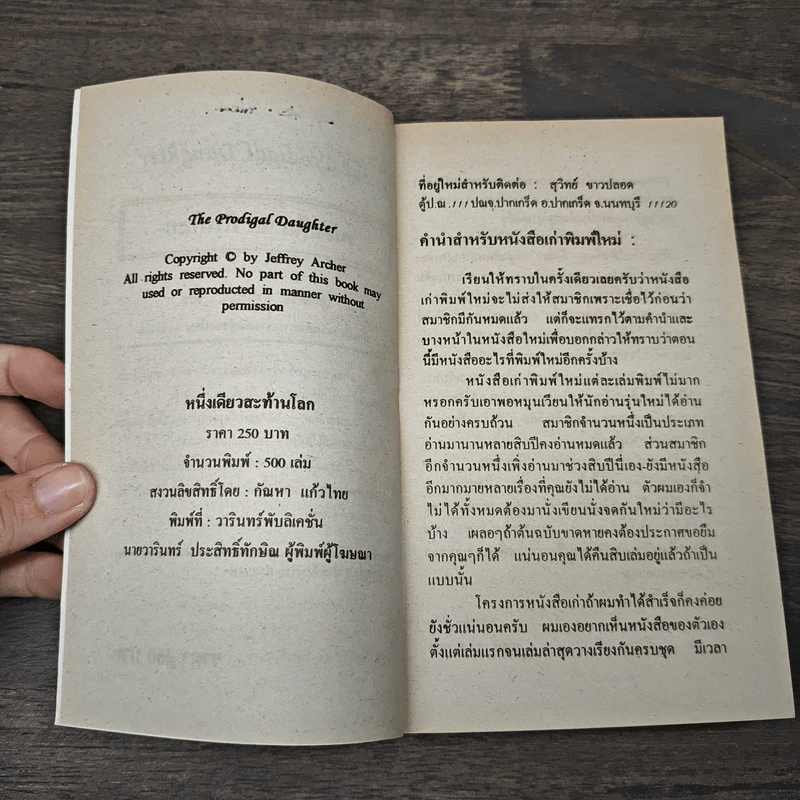 The Prodigal Daughter
Copyright © by Jeffrey Archer
All rights reserved. No part of this book may
used or reproduced in manner without
permission
หนึ่งเดียวสะท้านโลก
ราคา 250 บาท
จำนวนพิมพ์ : 500 เล่ม
สงวนลิขสิทธิ์โดย : กัณหา แก้วไทย
พิมพ์ที่ : วารินทร์พับลิเคชั่น
นายวารินทร์ ประสิทธิ์ทักษิณ ผู้พิมพ์ผู้โฆษณา
ที่อยู่ใหม่สำหรับติดต่อ : สุวิทย์ ขาวปลอด
ตู้ป.ณ. 111 ปณจ.ปากเกร็ด อ.ปากเกร็ด จ.นนทบุรี 11120
คำนำสำหรับหนังสือเก่าพิมพ์ใหม่ :
เรียนให้ทราบในครั้งเดียวเลยครับว่าหนังสือ
เก่าพิมพ์ใหม่จะไม่ส่งให้สมาชิกเพราะเชื่อไว้ก่อนว่า
สมาชิกมีกันหมดแล้ว แต่ก็จะแทรกไว้ตามคำนำและ
บางหน้าในหนังสือใหม่เพื่อบอกกล่าวให้ทราบว่าตอน
นี้มีหนังสืออะไรที่พิมพ์ใหม่อีกครั้งบ้าง
หนังสือเก่าพิมพ์ใหม่แต่ละเล่มพิมพ์ไม่มาก
หรอกครับเอาพอหมุนเวียนให้นักอ่านรุ่นใหม่ได้อ่าน
กันอย่างครบถ้วน สมาชิกจำนวนหนึ่งเป็นประเภท
อ่านมานานหลายสิบปีคงอ่านหมดแล้ว ส่วนสมาชิก
อีกจำนวนหนึ่งเพิ่งอ่านมาช่วงสิบปีนี้เอง-ยังมีหนังสือ
อีกมากมายหลายเรื่องที่คุณยังไม่ได้อ่าน ตัวผมเองก็จำ
ไม่ได้ทั้งหมดต้องมานั่งเขียนนั่งจดกันใหม่ว่ามีอะไร
บ้าง เผลอๆถ้าต้นฉบับขาดหายคงต้องประกาศขอยืม
จากคุณๆก็ได้ แน่นอนคุณได้คืนสิบเล่มอยู่แล้วถ้าเป็น
แบบนั้น
โครงการหนังสือเก่าถ้าผมทำได้สำเร็จก็คงค่อย
ยังชั่วแน่นอนครับ ผมเองอยากเห็นหนังสือของตัวเอง
ตั้งแต่เล่มแรกจนเล่มล่าสุดวางเรียงกันครบชุด มีเวลา